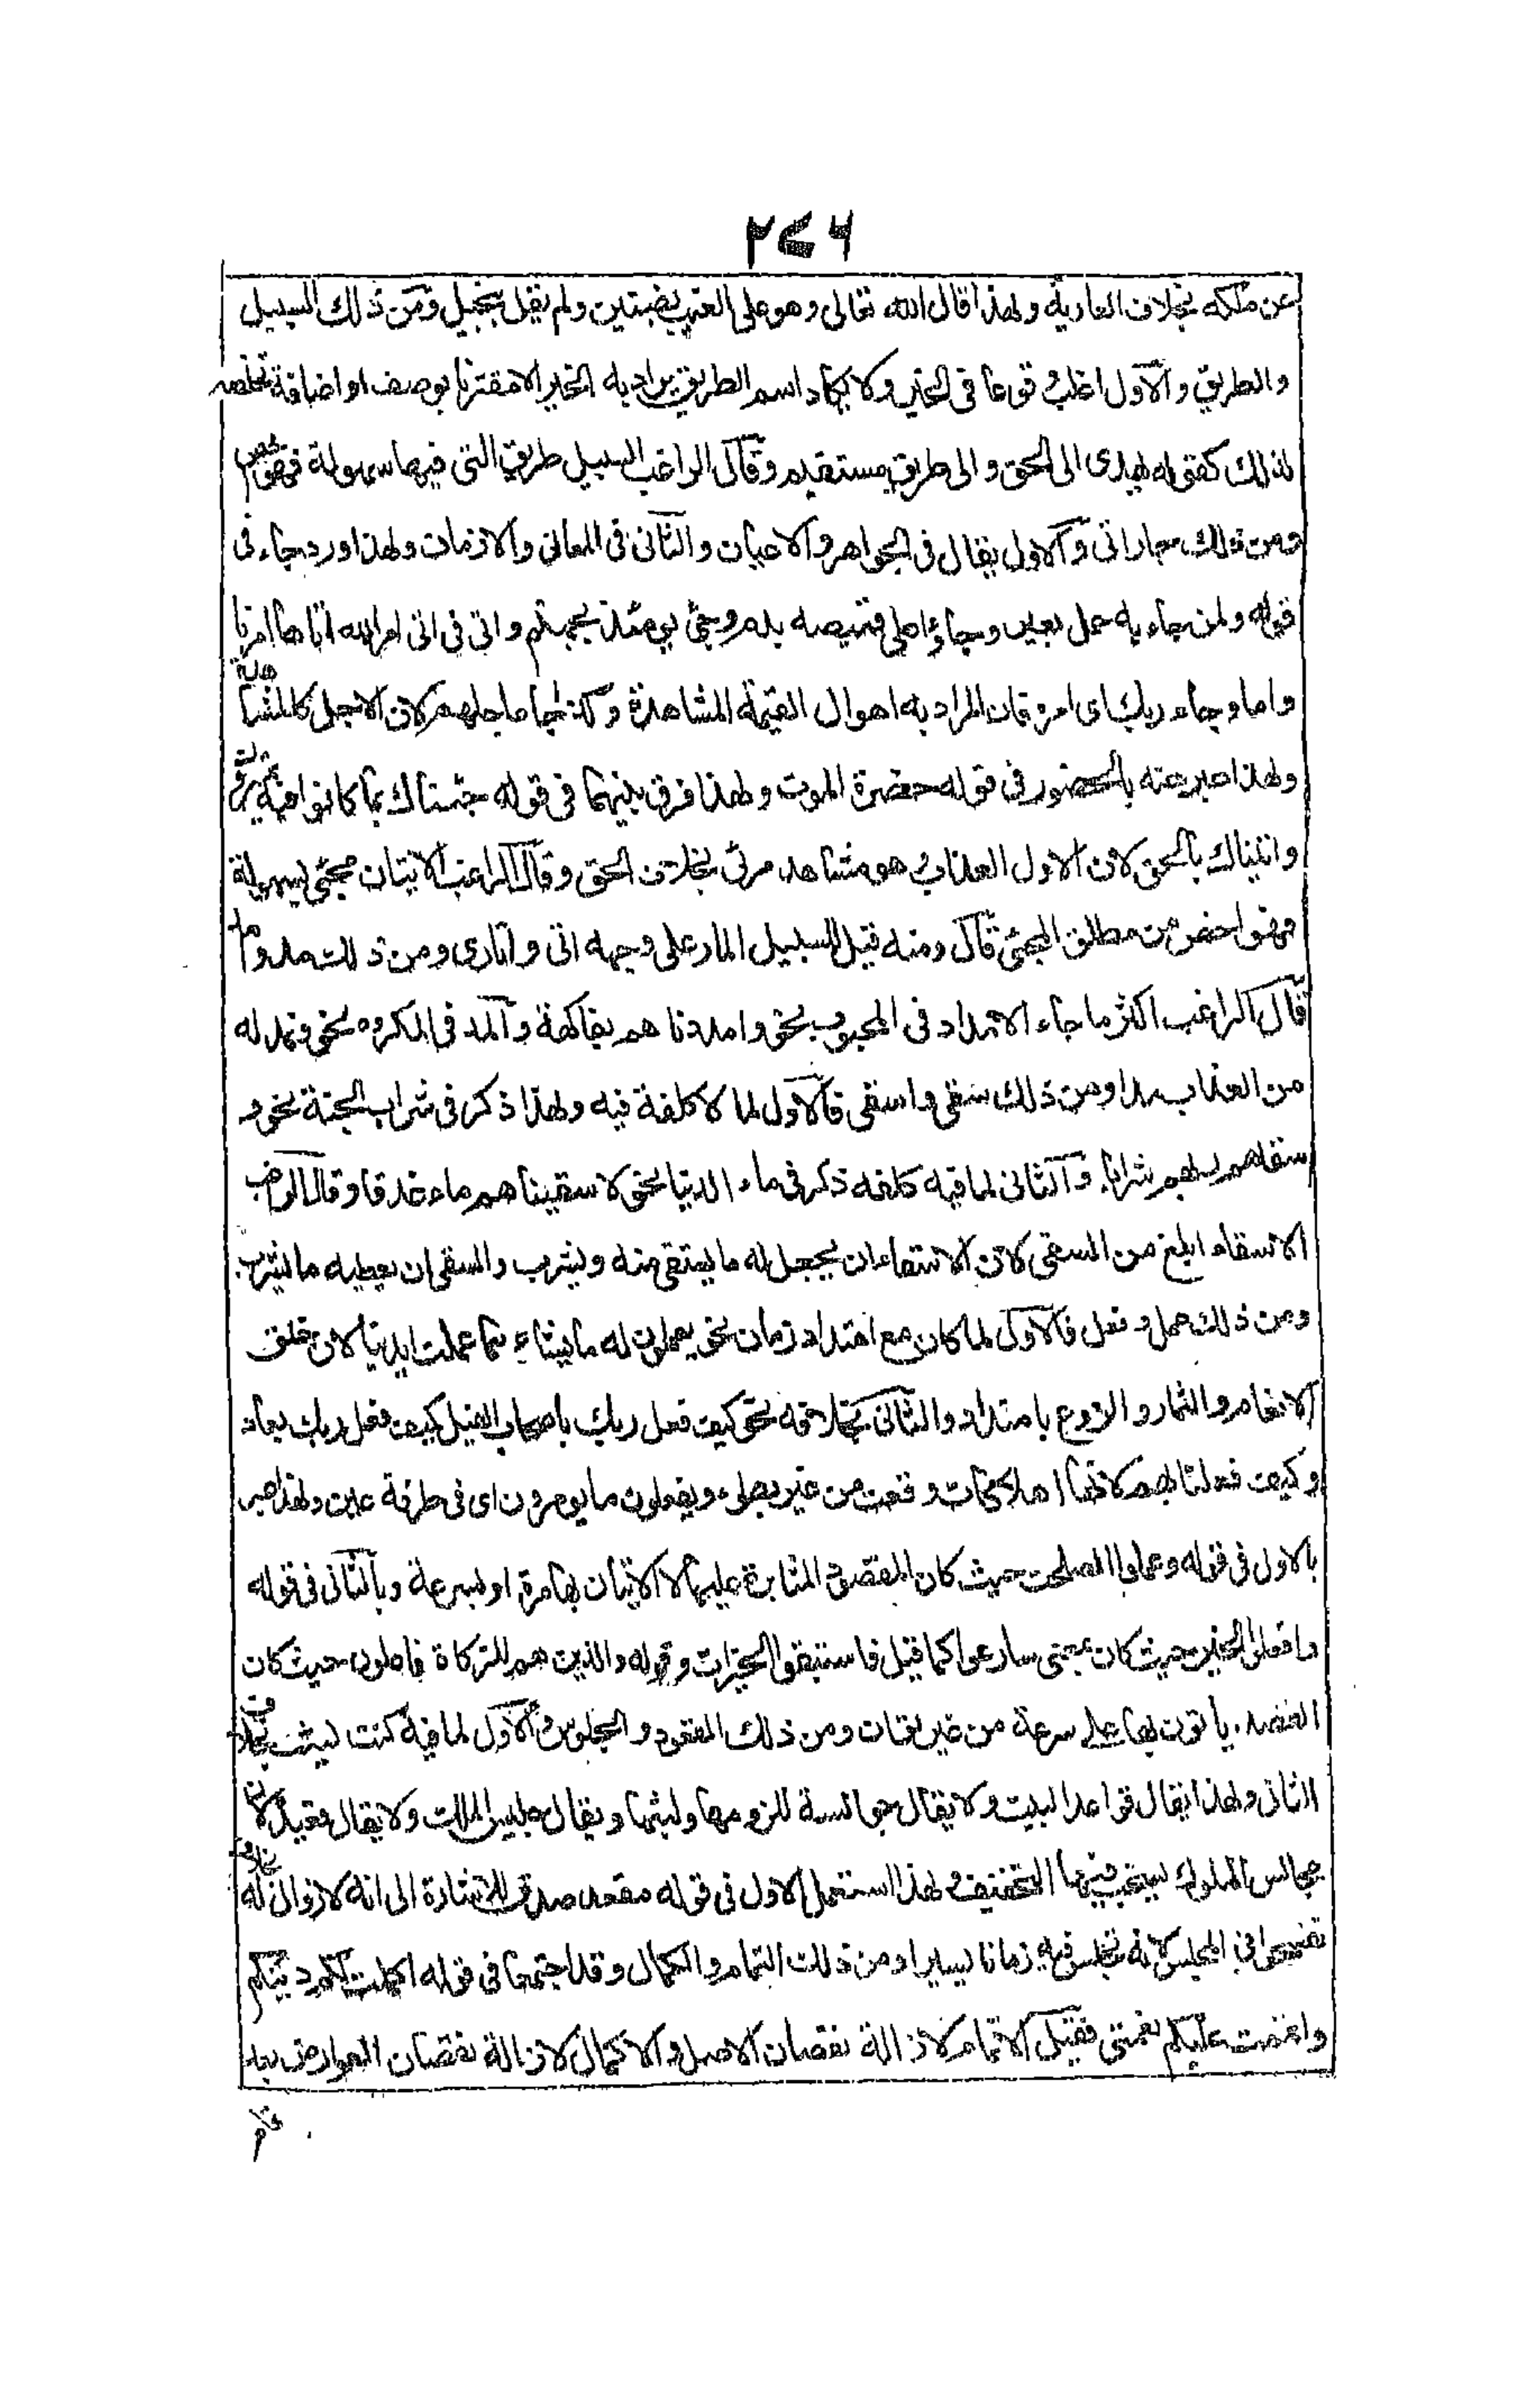 ٢٤٦
عن ملكه بخلاف العارية ولهذا قال الله تعالى وهو على الغيب بضنين ولم يقل ببخيل ومن ذلك السبيل
والطريق والاول اغلب وقوعا فى الخير ولا يكاد اسم الطريق يراد به الخير الا مقترنا بوصف او اضافة تخلصه
لذلك كقوله يهدى الى الحق والى طريق مستقيم وقال الراغب السبيل طريق التى فيها سهولة فهو اخص
ومن ذلك جاء واتى والاول يقال فى الجواهر والاعيان والثانى فى المعانى والازمان ولهذا ورد جاء فى
قوله ولمن جاء به حمل بعير وجاؤا على قميصه بدم وجئ يومئذ بجهنم واتى فى اتى امر الله اتاها امرنا
واما وجاء ربك اى امره فان المراد به اهوال القيمة المشاهدة وكذا جاء اجلهم لان الاجل كالمشاهدة
ولهذا عبر عنه بالحضور فى قوله حضرة الموت ولهذا فرق بينهما فى قوله جئناك بما كانوا فيه يمترون
واتيناك بالحق لان الاول العذاب هو مشاهد مرئى بخلاف الحق وقال الراغب الاتيان مجئ بسهولة
فهو اخص من مطلق المجئ قال ومنه قيل للسبيل المار على وجهه اتى واتاوى ومن ذلك مد وامد
قال الراغب اكثر ما جاء الامداد فى المحبوب نحو وامددناهم بفاكهة والمد فى المكروه نحو ونمد له
من العذاب مدا ومن ذلك سقى واسقى فالاول لما لا كلفة فيه ولهذا ذكر فى شراب الجنة نحو و
سقاهم ربهم شرابا والثانى لما فيه كلفه ذكر فى ماء الدنيا نحو لاسقيناهم ماء غدقا وقال الراغب
الاسقاء ابلغ من السقى لان الاسقاء ان يجعل له ما يستقى منه ويشرب والسقى ان يعطيه ما يشرب
ومن ذلك عمل وفعل فالاول لما كان مع امتداد زمان نحو يعملون له ما يشاء مما عملت ايدينا لان خلق
الانعام والثمار والزروع بامتداد والثانى بخلافه نحو كيف فعل ربك باصحاب الفيل كيف فعل ربك بعاد
وكيف فعلنا بهم لانها اهلاكات وقعت من غير بطؤ ويفعلون ما يومرون اى فى طرفة عين ولهذا عبر
بالاول فى قوله وعملوا الصلحت حيث كان المقصود المثابرة عليها لا الاتيان بها مرة او بسرعة وبالثانى فى قوله
وافعلوا الخير حيث كان بمعنى سارعوا كما قيل فاستبقوا الخيرات وقوله والذين هم للزكاة فاعلون حيث كان
القصد ياتون بها على سرعة من غير توان ومن ذلك القعود والجلوس والاول لما فيه لبث بخلاف
الثانى ولهذا يقال قواعد البيت ولا يقال جوالسة للزومها ولبثها ويقال جليس الملك ولا يقال قعيده لان
مجالس الملوك يستحب فيها التخفيف ولهذا استعمل الاول فى قوله مقعد صدق للاشارة الى انه لا زوال له بخلاف
تفسحوا فى المجلس لانه يجلس فيه زمانا يسيرا ومن ذلك التمام والكمال وقد اجتمعا فى قوله اكملت لكم دينكم
واتممت عليكم نعمتى فقيل الاتمام لازالة نقصان الاصل والاكمال لازالة نقصان العوارض بعد